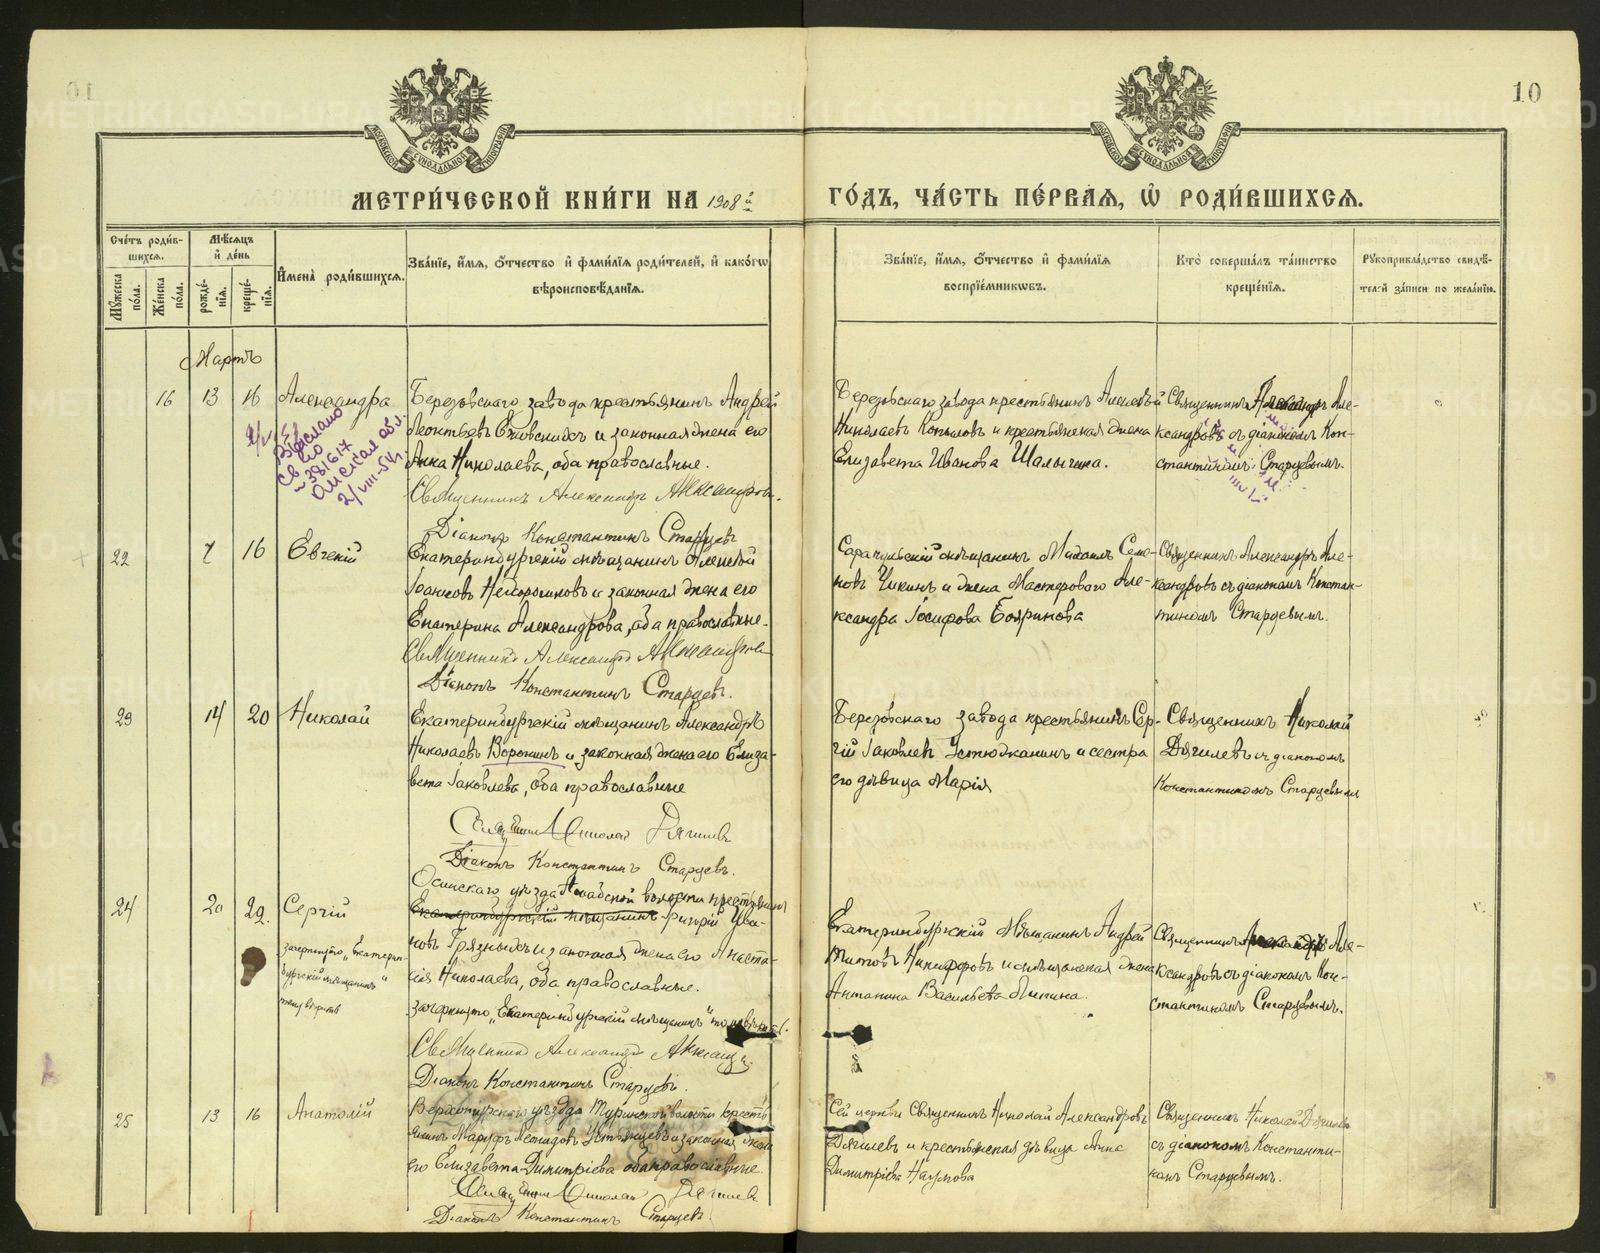 10
МЕТРИ́ЧЕСКОЙ КНИ́ГИ НА 1908й
ГО́ДЪ, ЧА́СТЬ ПЕ́РВАЯ, Ѡ РОДИ́ВШИХСЯ.
Сче́тъ роди́в-
шихся.
Мѣсяцъ
и де́нь
Мужеска по́ла.
Же́нска по́ла.
рожде́-нїя.
креще́-нїя.
И҆мена̀ роди́вшихся.
Зва́нїе, и҆́мя, ѻ҆́тчество и҆ фами́лїя роди́телей, и҆ како́гѡ
вѣроисповѣ́данїя.
Зва́нїе, и҆́мя, ѻ҆́тчество и҆ фами́лїя
воспрїе́мникѡвъ.
Кто̀ соверша́лъ та́инство
креще́нїя.
Рꙋкоприкла́дство свидѣ́-
телей за́писи по жела́нїю.
Мартъ
16 13 16 Александра
Выслано
св-во
381617
2/VIII-54г.
Березовскаго завода крестьянинъ Андрей
Леонтьевъ и законная жена его
Анна Николаева, оба православные.
Священникъ Александръ Александровъ.
Дiаконъ Константинъ Старцевъ
Березовскаго завода крестьянинъ Алексѣй
Николаевъ Копыловъ и крестьянская жена
Елизавета Иванова Шалыгина.
Священникъ Александръ Але-
ксандровъ съ дiакономъ Кон-
стантиномъ Старцевымъ.
22 7 16 Евгенiй
Екатеринбургскiй мѣщанинъ Алексѣй
Iоанновъ и законная жена его
Екатерина Александрова, оба православные.
Священникъ Александръ Александровъ
Дiаконъ Константинъ Старцевъ.
Сарапульскiй мѣщанинъ Михаилъ Семе-
новъ Чикинъ и жена Мастерового Але-
ксандра Iосифова Бояринова
Священникъ Александръ Але-
ксандровъ съ дiакономъ Констан-
тиномъ Старцевымъ.
23 14 20 Николай
Екатеринбургскiй мѣщанинъ Александръ
Николаевъ Воронинъ и законная жена его Елиза-
вета Iаковлева, оба православные
Священникъ Николай Дягилевъ
Дiаконъ Константинъ Старцевъ.
Березовскаго завода крестьянинъ Сер-
гiй Iаковлевъ Устюжанинъ и сестра
его дѣвица Марiя
Священникъ Николай
Дягилевъ съ дiакономъ
Константиномъ Старцевымъ
24 20 22. Сергiй
зачеркнуто „Екатерин-
бургскiй мѣщанинъ"
Осинскаго уѣзда волости крестьянинъ
Екатеринбургскiй мѣщанинъ Григорiй Ива-
новъ Грязныхъ и законная жена его Анаста-
сiя Николаева, оба православные.
зачеркнуто „Екатеринбургскiй мѣщанинъ"
Священникъ Александръ
Дiаконъ Константинъ Старцевъ.
Екатеринбургскiй Мѣщанинъ Андрей
Титовъ Никифоровъ и мѣщанская жена
Антонина Васильева Липина.
Священникъ Александръ Але-
ксандровъ съ дiакономъ Кон-
стантиномъ Старцевымъ.
25 13 16 Анатолiй
Верхотурскаго уѣзда Туринской волости кресть-
янинъ Леонидовъ Устьянцевъ и законная жена
его Елизавета Димитрiева оба православные
Священникъ Николай Дягилевъ
Дiаконъ Константинъ Старцевъ.
Сей церкви Священникъ Николай Александровъ
Дягилевъ и крестьянская дѣвица Анна
Димитрiева Наумова
Священникъ Николай Дягилевъ
съ дiакономъ Константи-
номъ Старцевымъ.
METRIKI.GASO-URAL.RU